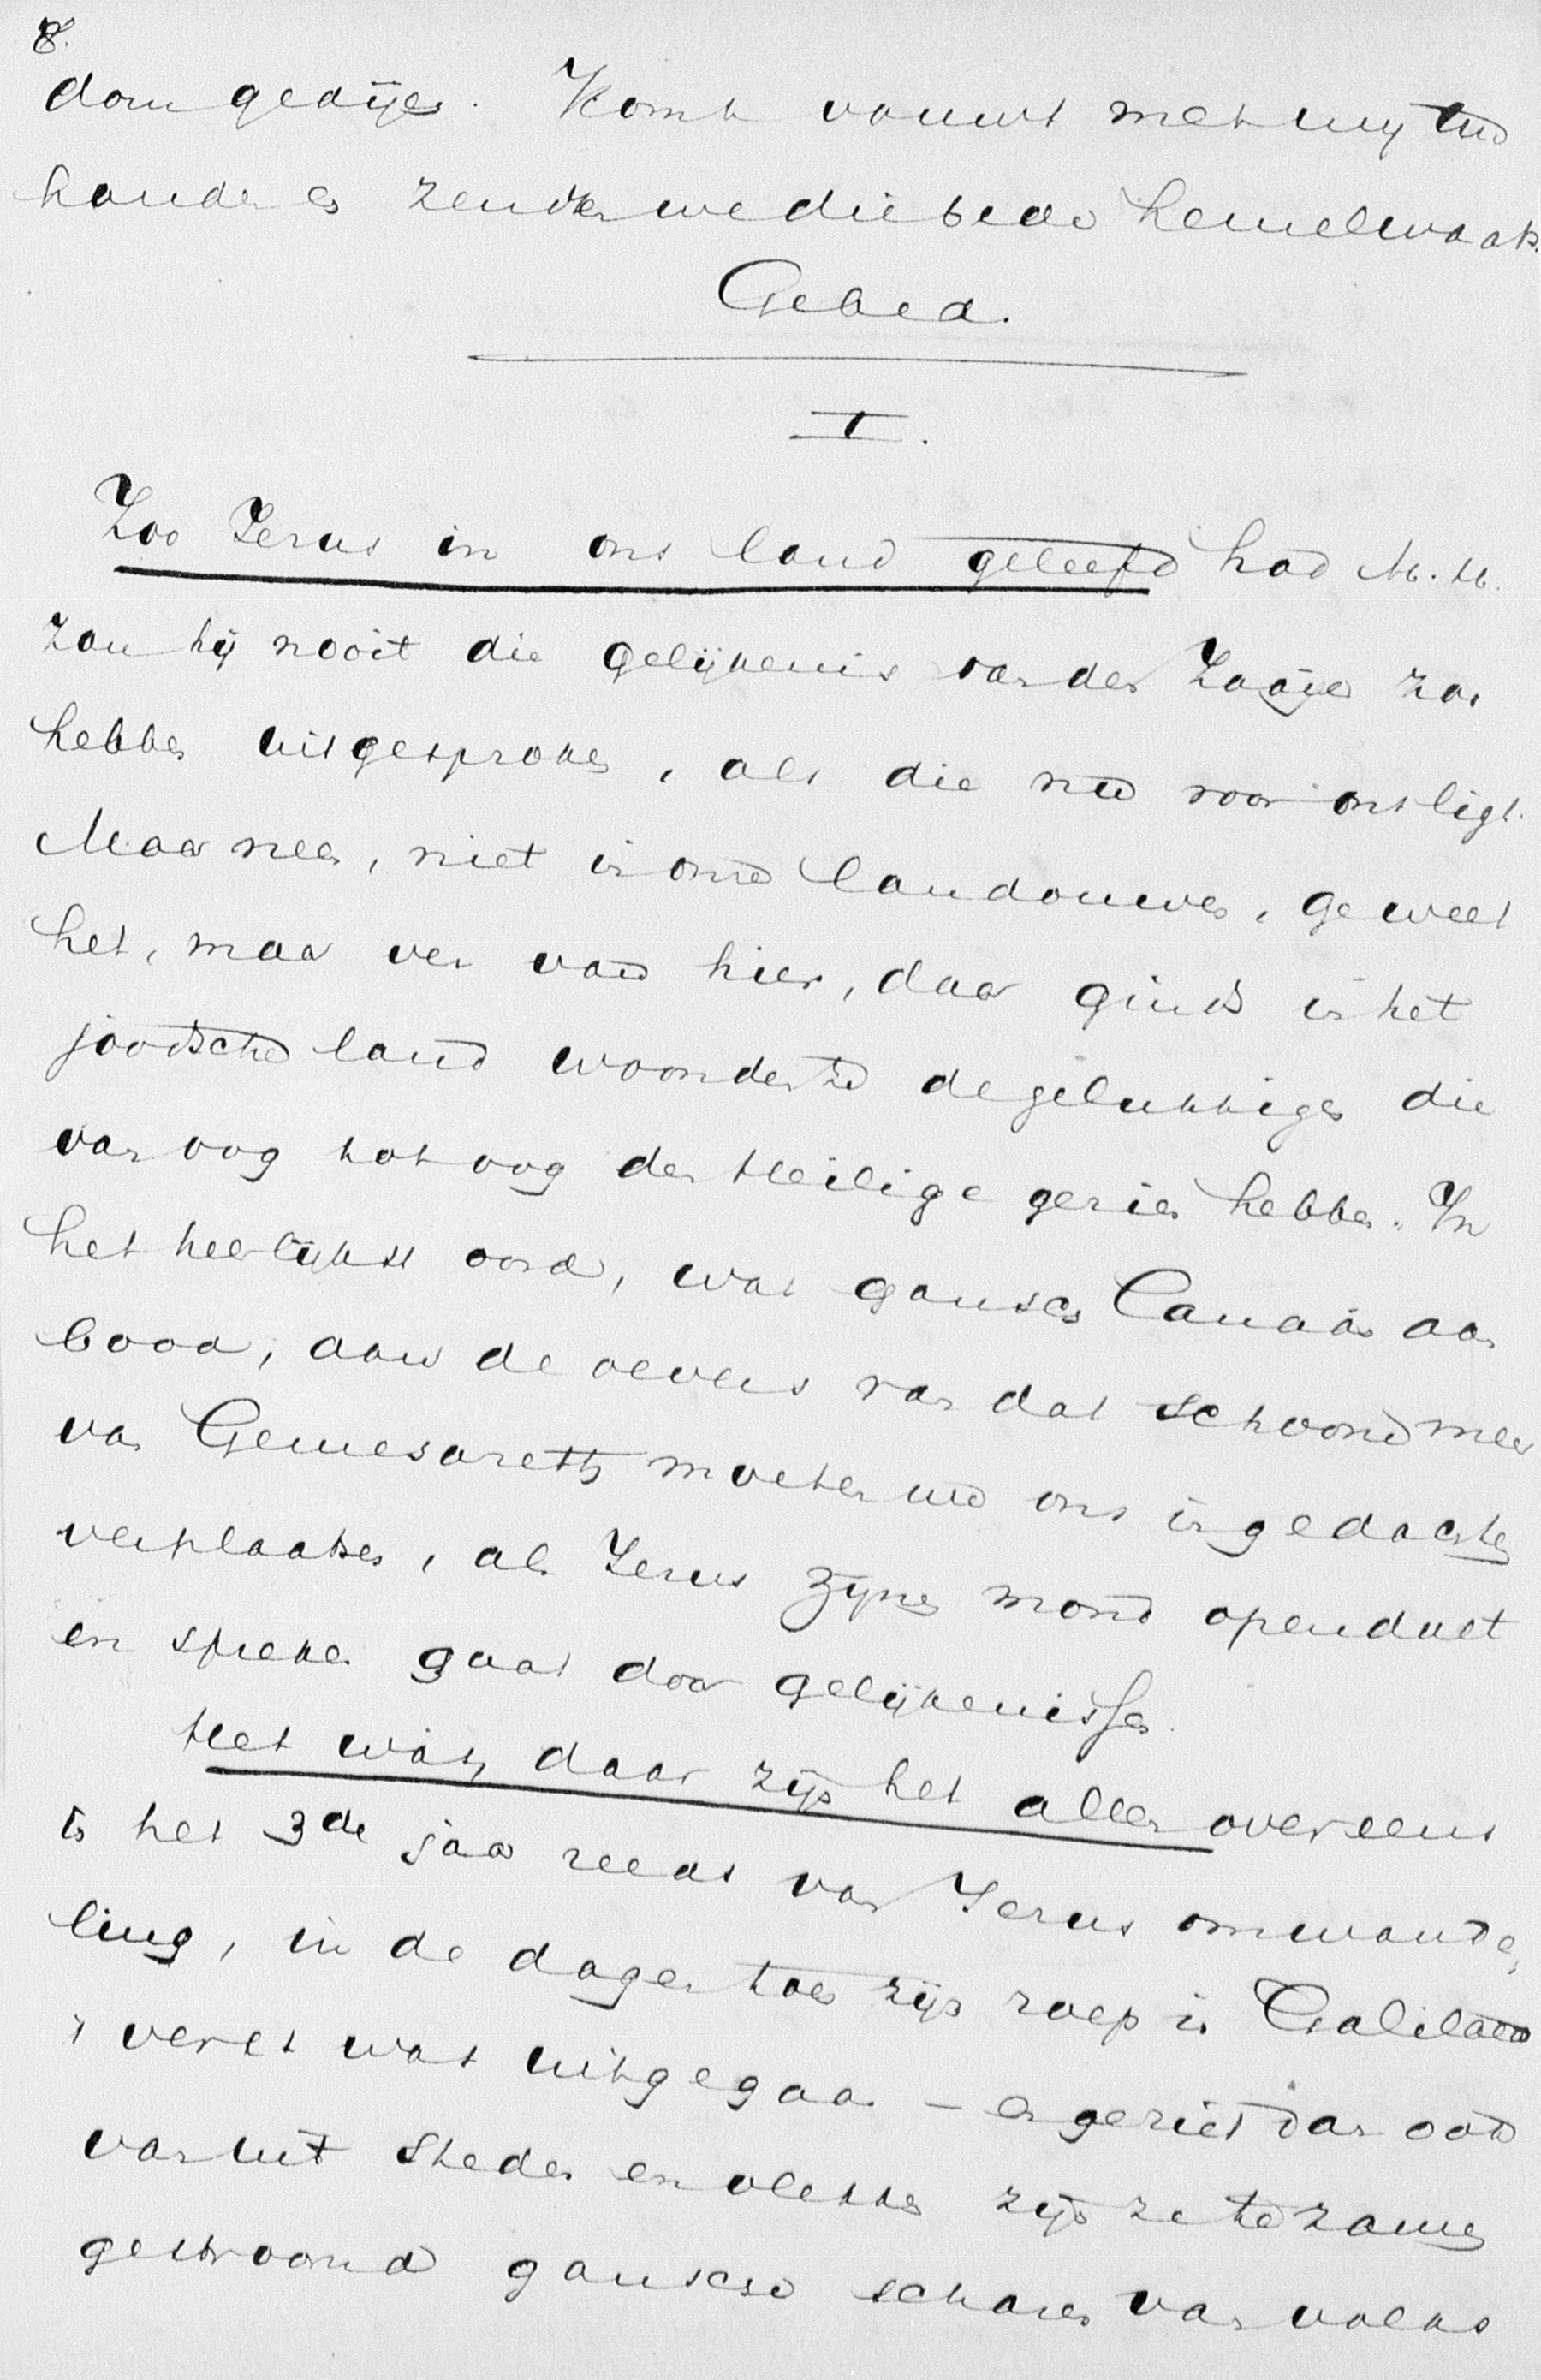 8.
dom gedije. Komt vouwt met mij uwe
handen en zenden we die bede hemelwaarts.
Gebed.
I.
Zoo Jezus in ons land geleefd had M. H.
zou hij nooit die gelijkenis van den Zaaier zoo
hebben uitgesproken, als die nu voor ons ligt.
Maar neen, niet in onze landouwen, ge weet
het, maar ver van hier, daar ginds in het
joodsche land woonden de gelukkigen die
van oog tot oog den Heilige gezien hebben. In
het heerlijkst oord, wat gansch Canaän aan
bood, aan de oevers van dat schoone meer
van Gennesareth moeten we ons in gedachten
verplaatsen, als Jezus zijnen mond opendoet
en spreken gaat door gelijkenissen.
Het was, daar zijn het allen over eens
in het 3de jaar reeds van Jezus omwande
ling, in de dagen toen zijn roep in Galilaea
't verst was uitgegaan — en geziet dan ook
van uit steden en vlekken zijn ze te zamen
gestroomd gansche scharen van volks